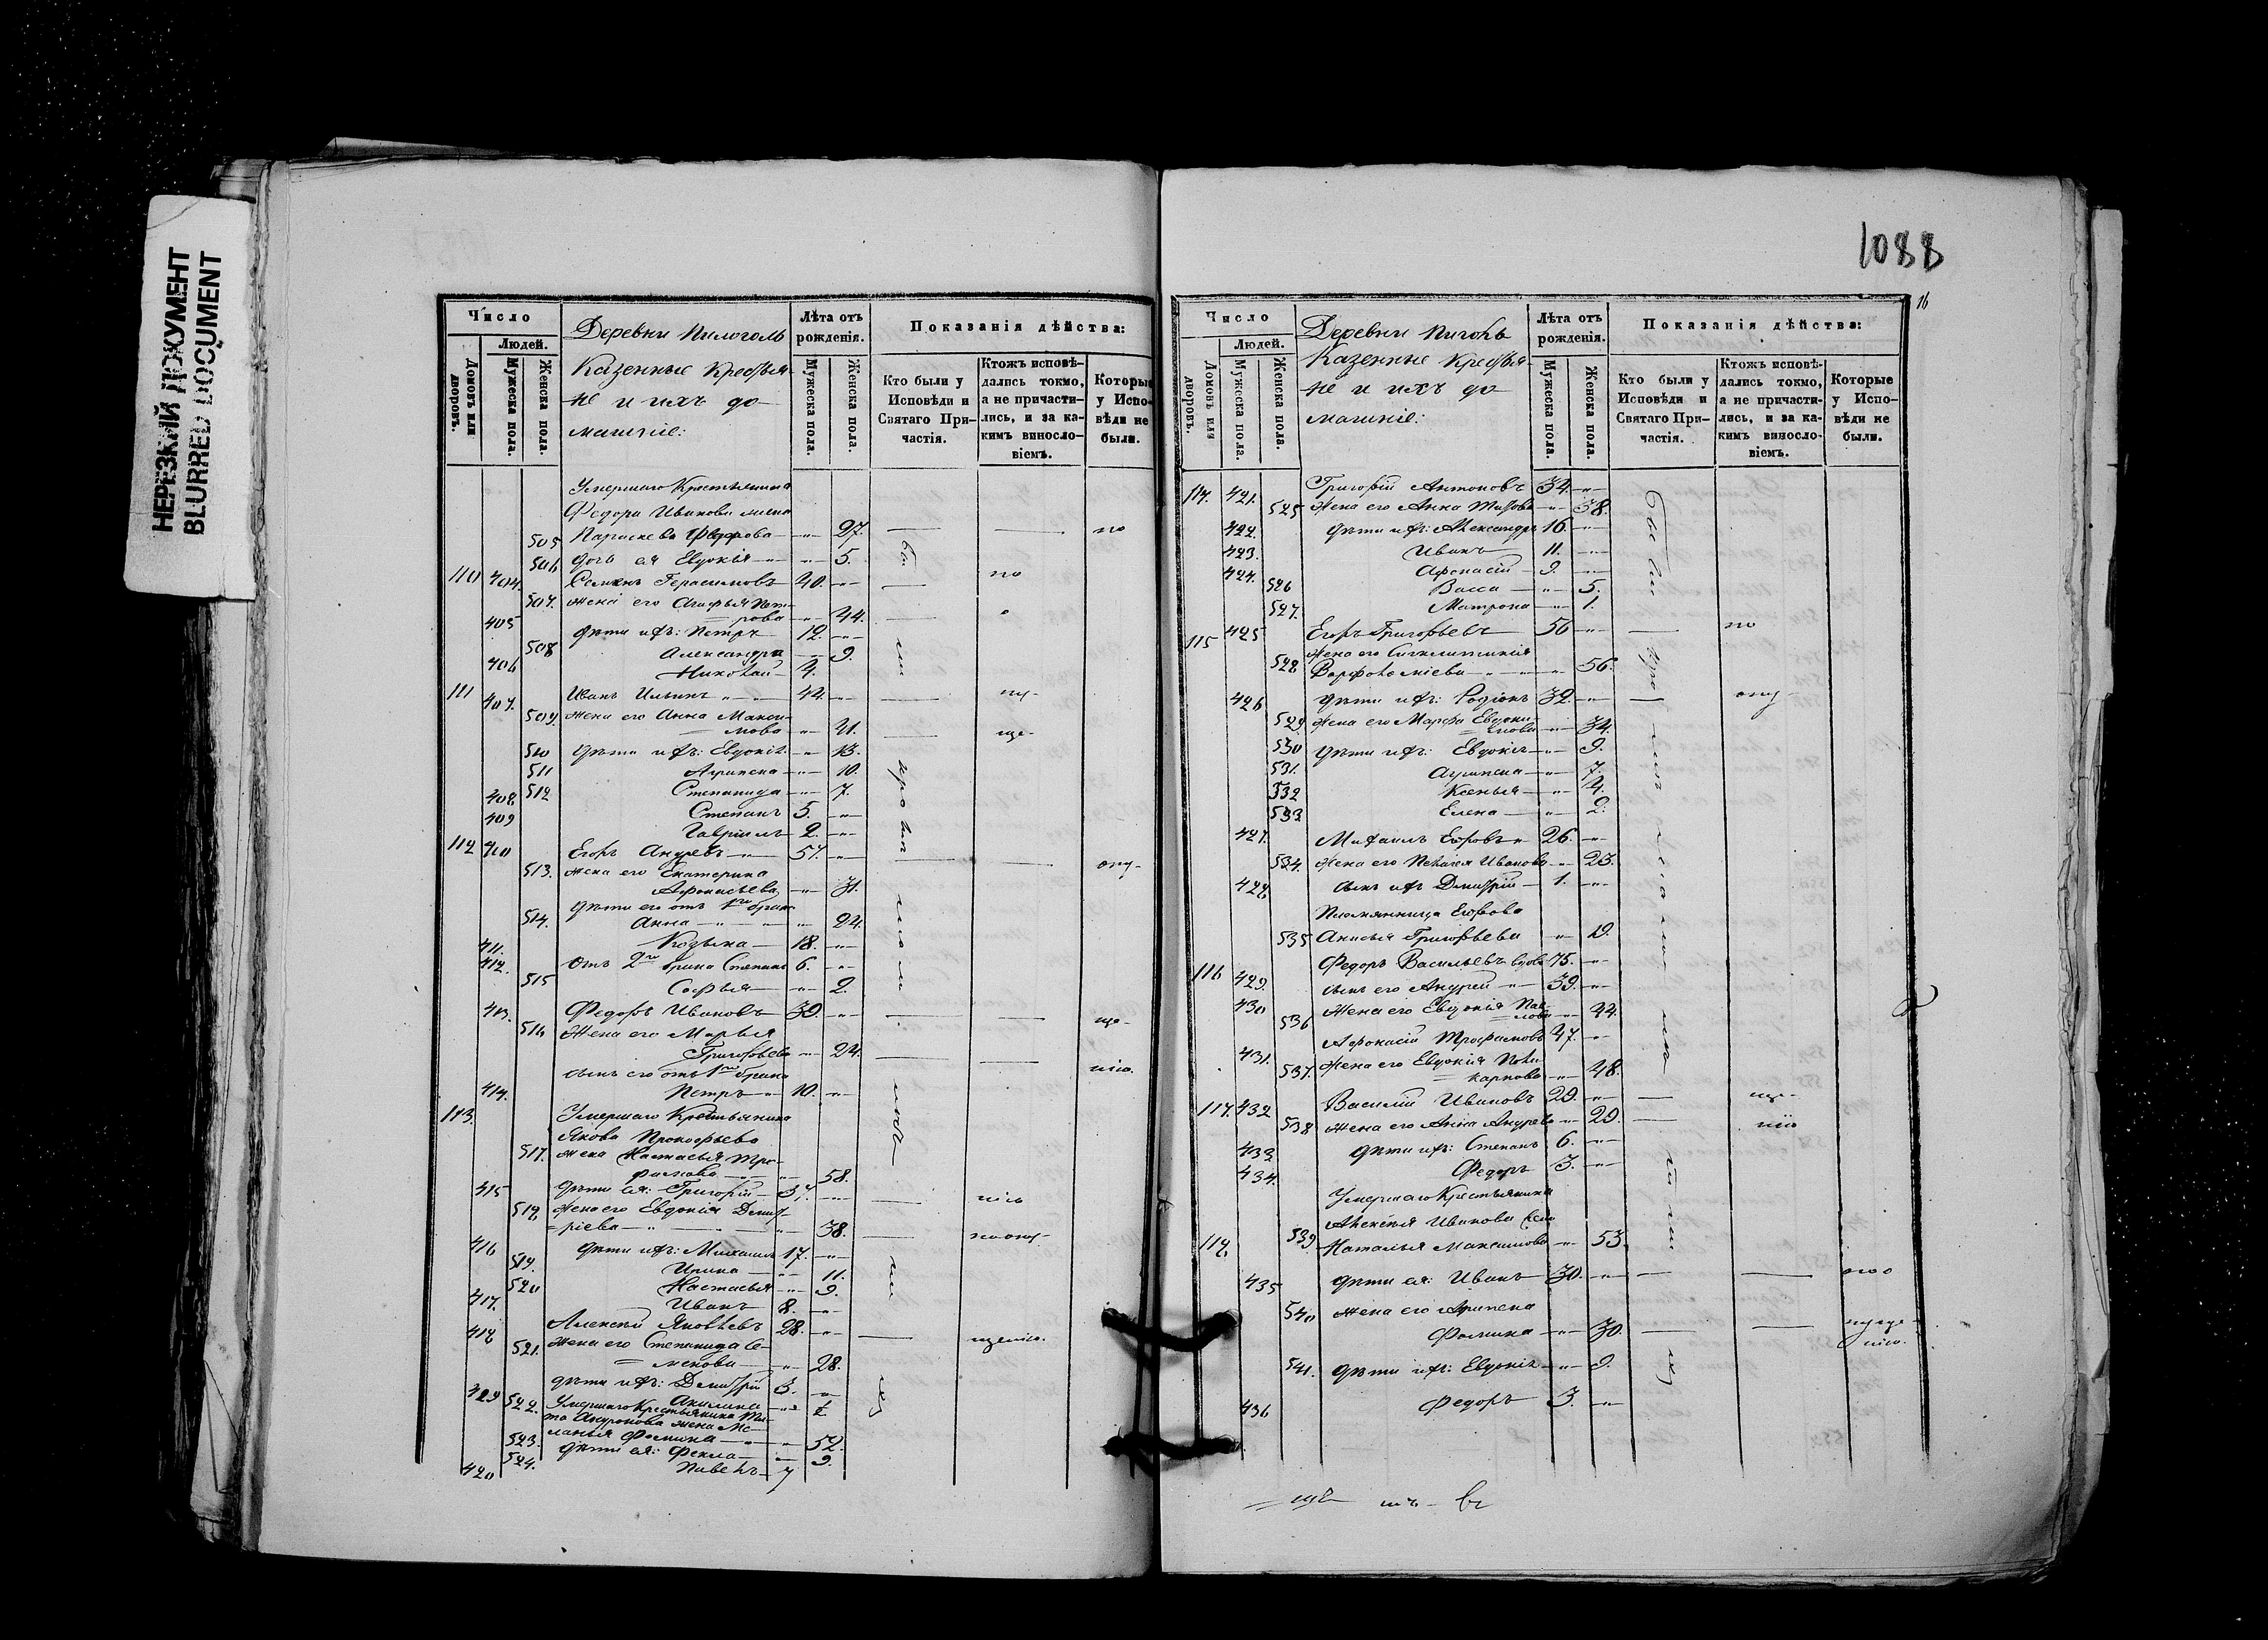 НЕРЕЗКИЙ ДОКУМЕНТ
BLURRED DOCUMENT
Число
Людей.
Домовъ или дворовъ.
Мужеска пола.
Женска пола.
Деревни
Казенные Крестья-
не и ихъ до-
машніе:
Лѣта отъ рожденія.
Мужеска пола.
Женска пола.
Показанія дѣйства:
Кто были у Исповѣди и Святаго При-частія.
Ктожъ исповѣ-дались токмо, а не причасти-лись, и за ка-кимъ винosло-віемъ.
Которые у Испо-вѣди не были.
Умершаго Крестьянина
Федора Иванова жена
505 Параскева Федорова 27. по
506 дочь ея Евдокія 5.
110 404. Семенъ Герасимовъ 40. по
507. жена его Агафья Пет-
рова 44.
405 дѣти ихъ: Петръ 12.
508 Александра 9.
406 Николай 4.
111 407. Иванъ Ильинъ 42.
509. жена его Анна Макси-
мова 41.
510 дѣти ихъ: Евдокія 13.
511 Агрипена 10.
512 Степанида 7.
408 Степанъ 5.
409 Гавріилъ 2.
112 410 Егоръ Андреевъ 57. опу-
513. жена его Екатерина
Афонасьева 31.
дѣти его отъ 1го брака
514. Анна 22.
411. Козьма 18.
412. Отъ 2го брака Степанъ 6.
515 Софья 2.
413. Федоръ Ивановъ 39. ще-
516 Жена его Марья
Григорьева 24. нію.
сынъ его отъ 1го брака
414. Петръ 10.
113. Умершаго Крестьянина
Якова Прокофьева
517. жена Настасья Тро-
фимова 58.
415 дѣти ея: Григорій 37. нію
518. Жена его Евдокія Дмит-
ріева 38. по опу-
416 дѣти ихъ: Михаилъ 17.
519. Ирина 11.
520 Настасья 9.
417. Иванъ 8.
418 Алексей Яковлевъ 28.
521. Жена его Степанида Се-
менова 28. щенію.
дѣти ихъ: Дмитрій 3.
522. Акилина ½
Умершаго Крестьянина
Андронова жена Ме-
523. ланья Фомина 52.
524. дѣти ея: Фекла 9.
420 Павелъ 7
1088
16
Число
Людей.
Домовъ или дворовъ.
Мужеска пола.
Женска пола.
Деревни
Казенные Крестья-
не и ихъ до-
машніе:
Лѣта отъ рожденія.
Мужеска пола.
Женска пола.
Показанія дѣйства:
Кто были у Исповѣди и Святаго При-частія.
Ктожъ исповѣ-дались токмо, а не причасти-лись, и за ка-кимъ винosло-віемъ.
Которые у Испо-вѣди не были.
114. 421. Григорій Антоновъ 34.
525 Жена его Анна Титова 38.
422. дѣти ихъ: Александръ 16
423. Иванъ 11.
424. Афонасій 9.
526 Васса 5.
527. Матрона 1.
115 425 Егоръ Григорьевъ 56 по
Жена его Сигклитикія
528 Варфоломіева 56.
426 дѣти ихъ: Родіонъ 32. опу-
529 Жена его Марфа Евдоки-
мова 34.
530 дѣти ихъ: Евдокія 9.
531. Агрипена 7.
532 Ксенья 4.
533 Елена 2.
427. Михаилъ Егоровъ 26.
534. Жена его Пелагея Иванова 23.
428 сынъ ихъ Дмитрій 1.
Племянница Егорова
535 Анисья Григорьева 19.
116 429. Федоръ Васильевъ вдовъ 75.
430 сынъ его Андрей 39.
536 Жена его Евдокія Пав-
лова 44.
431. Афонасій Трофимовъ 47.
537. Жена его Евдокія Поли-
карпова 48.
117. 432 Василій Ивановъ 29. ще-
538 Жена его Анна Андреева 29. нію
433 дѣти ихъ: Степанъ 6.
434. Федоръ 3.
Умершаго Крестьянина
Алексѣя Иванова жена
118 539 Наталья Максимова 53.
435 дѣти ея: Иванъ 30.
540 Жена его Агрипена
Фомина 30.
нію.
541. дѣти ихъ: Евдокія 9.
436 Федоръ 3.